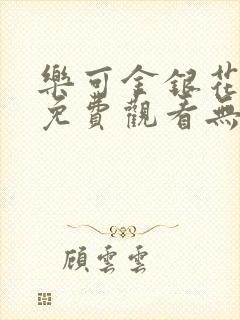 樂可金銀花
免費觀看無
顧雲雲